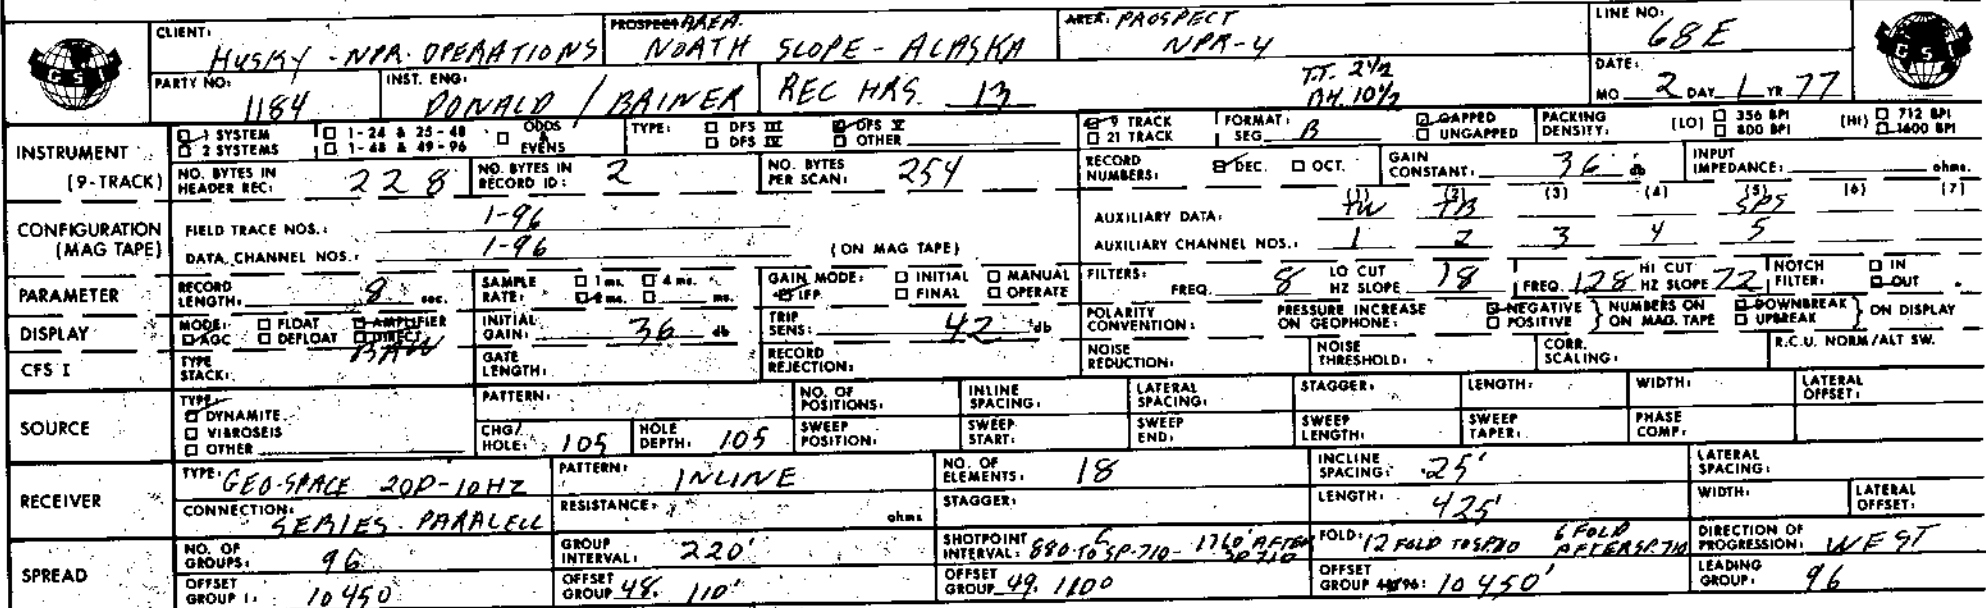 CLIENT: HUSKY - NPR. OPERATIONS PROSPECT AREA. NORTH SLOPE - ALASKA AREA: PROSPECT NPR-4 LINE NO: 68E
GSI GSI
PARTY NO: 1184 INST. ENG: DONALD / BAINER REC HRS. 13 T.T. 2 1/2 DATE: MO 2 DAY 1 YR 77
INSTRUMENT (9-TRACK)
1 SYSTEM 1-24 & 25-48 ODDS & EVENS TYPE: DFS III DFS V 9 TRACK FORMAT: SEG B GAPPED PACKING DENSITY: (LO) 356 BPI (HI) 712 BPI
2 SYSTEMS 1-48 & 49-96 DFS IV OTHER 21 TRACK UNGAPPED 800 BPI 1600 BPI
NO. BYTES IN HEADER REC: 228 NO. BYTES IN RECORD ID: 2 NO. BYTES PER SCAN: 254 RECORD NUMBERS: DEC. OCT. GAIN CONSTANT: 36 db INPUT IMPEDANCE: ohms.
CONFIGURATION (MAG TAPE)
(1) (2) (3) (4) (5) (6) (7)
FIELD TRACE NOS.: 1-96 AUXILIARY DATA: TB SPS
DATA CHANNEL NOS.: 1-96 (ON MAG TAPE) AUXILIARY CHANNEL NOS.: 1 2 3 4 5
PARAMETER RECORD LENGTH: 8 sec. SAMPLE RATE: 1 ms. 4 ms. 2 ms. ms. GAIN MODE: INITIAL MANUAL IFP FINAL OPERATE FILTERS: FREQ. 8 LO CUT HZ SLOPE 18 FREQ. 128 HI CUT HZ SLOPE 72 NOTCH FILTER: IN OUT
DISPLAY MODE: FLOAT AMPLIFIER AGC DEFLOAT DIRECT INITIAL GAIN: 36 db TRIP SENS: 42 db POLARITY CONVENTION: PRESSURE INCREASE ON GEOPHONE: NEGATIVE POSITIVE NUMBERS ON ON MAG. TAPE DOWNBREAK UPBREAK ON DISPLAY
CFS I TYPE STACK: GATE LENGTH: RECORD REJECTION: NOISE REDUCTION: NOISE THRESHOLD: CORR. SCALING: R.C.U. NORM/ALT SW.
SOURCE TYPE: DYNAMITE VIBROSEIS OTHER
PATTERN: NO. OF POSITIONS: INLINE SPACING: LATERAL SPACING: STAGGER: LENGTH: WIDTH: LATERAL OFFSET:
CHG/HOLE: 105 HOLE DEPTH: 105 SWEEP POSITION: SWEEP START: SWEEP END: SWEEP LENGTH: SWEEP TAPER: PHASE COMP:
RECEIVER TYPE: GEO-SPACE 20D-10HZ PATTERN: INLINE NO. OF ELEMENTS: 18 INCLINE SPACING: 25' LATERAL SPACING:
CONNECTION: SERIES - PARALELL RESISTANCE: ohms STAGGER: LENGTH: 425' WIDTH: LATERAL OFFSET:
SPREAD NO. OF GROUPS: 96 GROUP INTERVAL: 220' SHOTPOINT INTERVAL: 880 TO SP-710 - 1760' AFTER SP 710 FOLD: 12 FOLD TO SP710 6 FOLD AFTER SP.710 DIRECTION OF PROGRESSION: WEST
OFFSET GROUP 1: 10450 OFFSET GROUP 48: 110' OFFSET GROUP 49: 1100 OFFSET GROUP 96: 10450' LEADING GROUP: 96